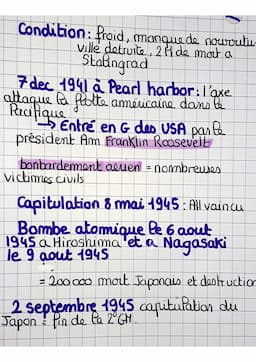 Condition : froid, manque de nourritu
ville détruite, 2M de mort a
Stalingrad
7 dec 1941 à Pearl harbor : l'axe
attaque la flotte américaine dans le
Pacifique
↳ Entré en G des USA par le
président Am Franklin Roosevelt
bonbardement aerien = nombreuses
victimes civils
Capitulation 8 mai 1945 : All vaincu
Bombe atomique le 6 aout
1945 a Hiroshima et a Nagasaki
le 9 aout 1945
= 200 000 mort Japonais et destruction
2 septembre 1945 capitulation du
Japon = fin de la 2°GM.